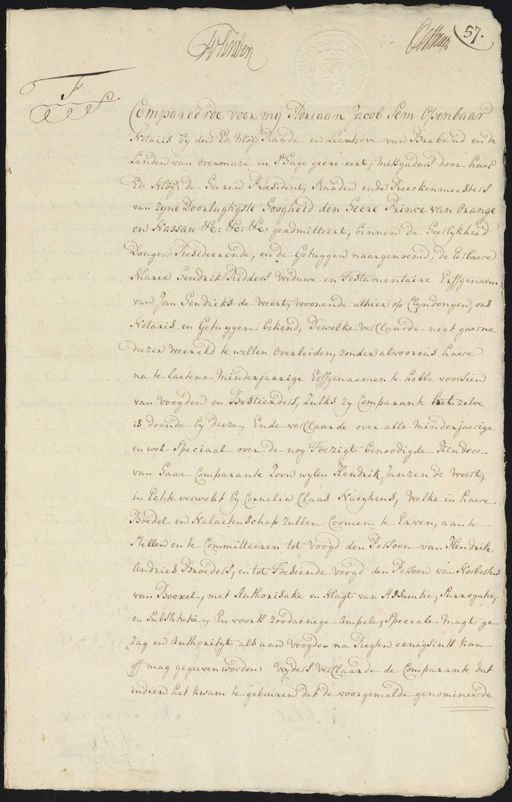 57.
F
Compareerde voor mij Adriaan Jacob Sem Openbaar
Notaris by den Ed. Moog: Raade en Leenhove van Braband en de
Landen van overmaze in s'Hage geresi:eert, mitsgaders door haer
Ed: Moog: de Heeren President, Raaden ende Reeckenmeesters
van zijne Doorlugtigste Hoogheid den Heere Prince van Orange
en Nassau &c: &c: &c: geadmitteert, binnen de Heerlijkheid
Dongen Resideerende, en de Getuygen naargenoemd, de Eerbaere
Maria Hendrik Ridders Weduwe en Testamentaire Erffgenaem
van Jan Hendricks de Weert, woonende alhier op Clyndongen, ons
Notaris en Getuygen bekend, Dewelke verclaarde niet gaerne
deezer Weereld te willen overleiden, zonder alvoorens haere
na te laetene Minderjaerige Erffgenaemen te hebbe voorsien
van Voogden en Bestierders, Zulks zy Comparante het zelve
is doende by deeze, Ende verclaarde over alle Minderjaerige
en wel Speciaal over de nog Toezigt benoodigde Kinderen
van Haar Comparante Zoon wylen Hendrik Janzen de Weert,
in Echte verwekt by Cornelia Claas Kaeykens, Welke in haere
Boedel en Nalaetenschap zullen Coomen te Erven, aan te
stellen en te Committeeren tot voogd den Persoon van Hendrik
Andries Broeders, en tot Toesiende voogd den Persoon van Norbertus
van Boexel, met Authorisatie en Magt van Assumtie, Surrogatie,
en Substitutie, En voorts zoodaenige Ampele, Speciale Magt ge
zag en Authorityt als aan voogden na Regten eenigsints kan
off mag gegeven worden: Wyders verclaarde de Comparante dat
indien het kwam te gebeuren dat de voorgemelde genomineerde